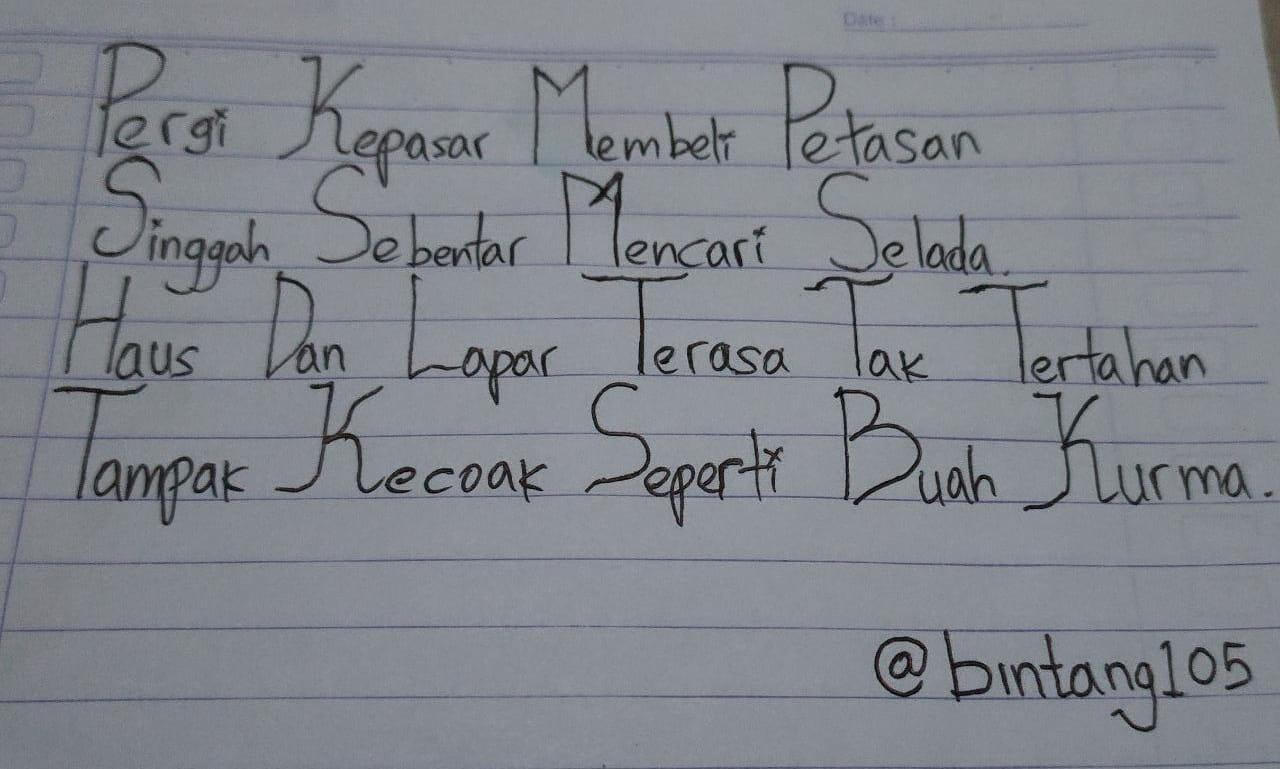 Date :
Pergi Kepasar Membeli Petasan
Singgah Sebentar Mencari Selada.
Haus Dan Lapar Terasa Tak Tertahan
Tampak Kecoak Seperti Buah Kurma.
@bintang105